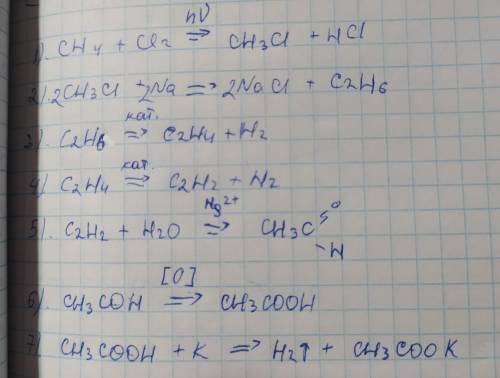 hν
1). CH4 + Cl2 => CH3Cl + HCl
2). 2CH3Cl + 2Na => 2NaCl + C2H6
кат.
3). C2H6 => C2H4 + H2
кат.
4). C2H4 => C2H2 + H2
Hg2+
5). C2H2 + H2O => CH3C=O
-H
[O]
6). CH3COH => CH3COOH
7). CH3COOH + K => H2↑ + CH3COOK